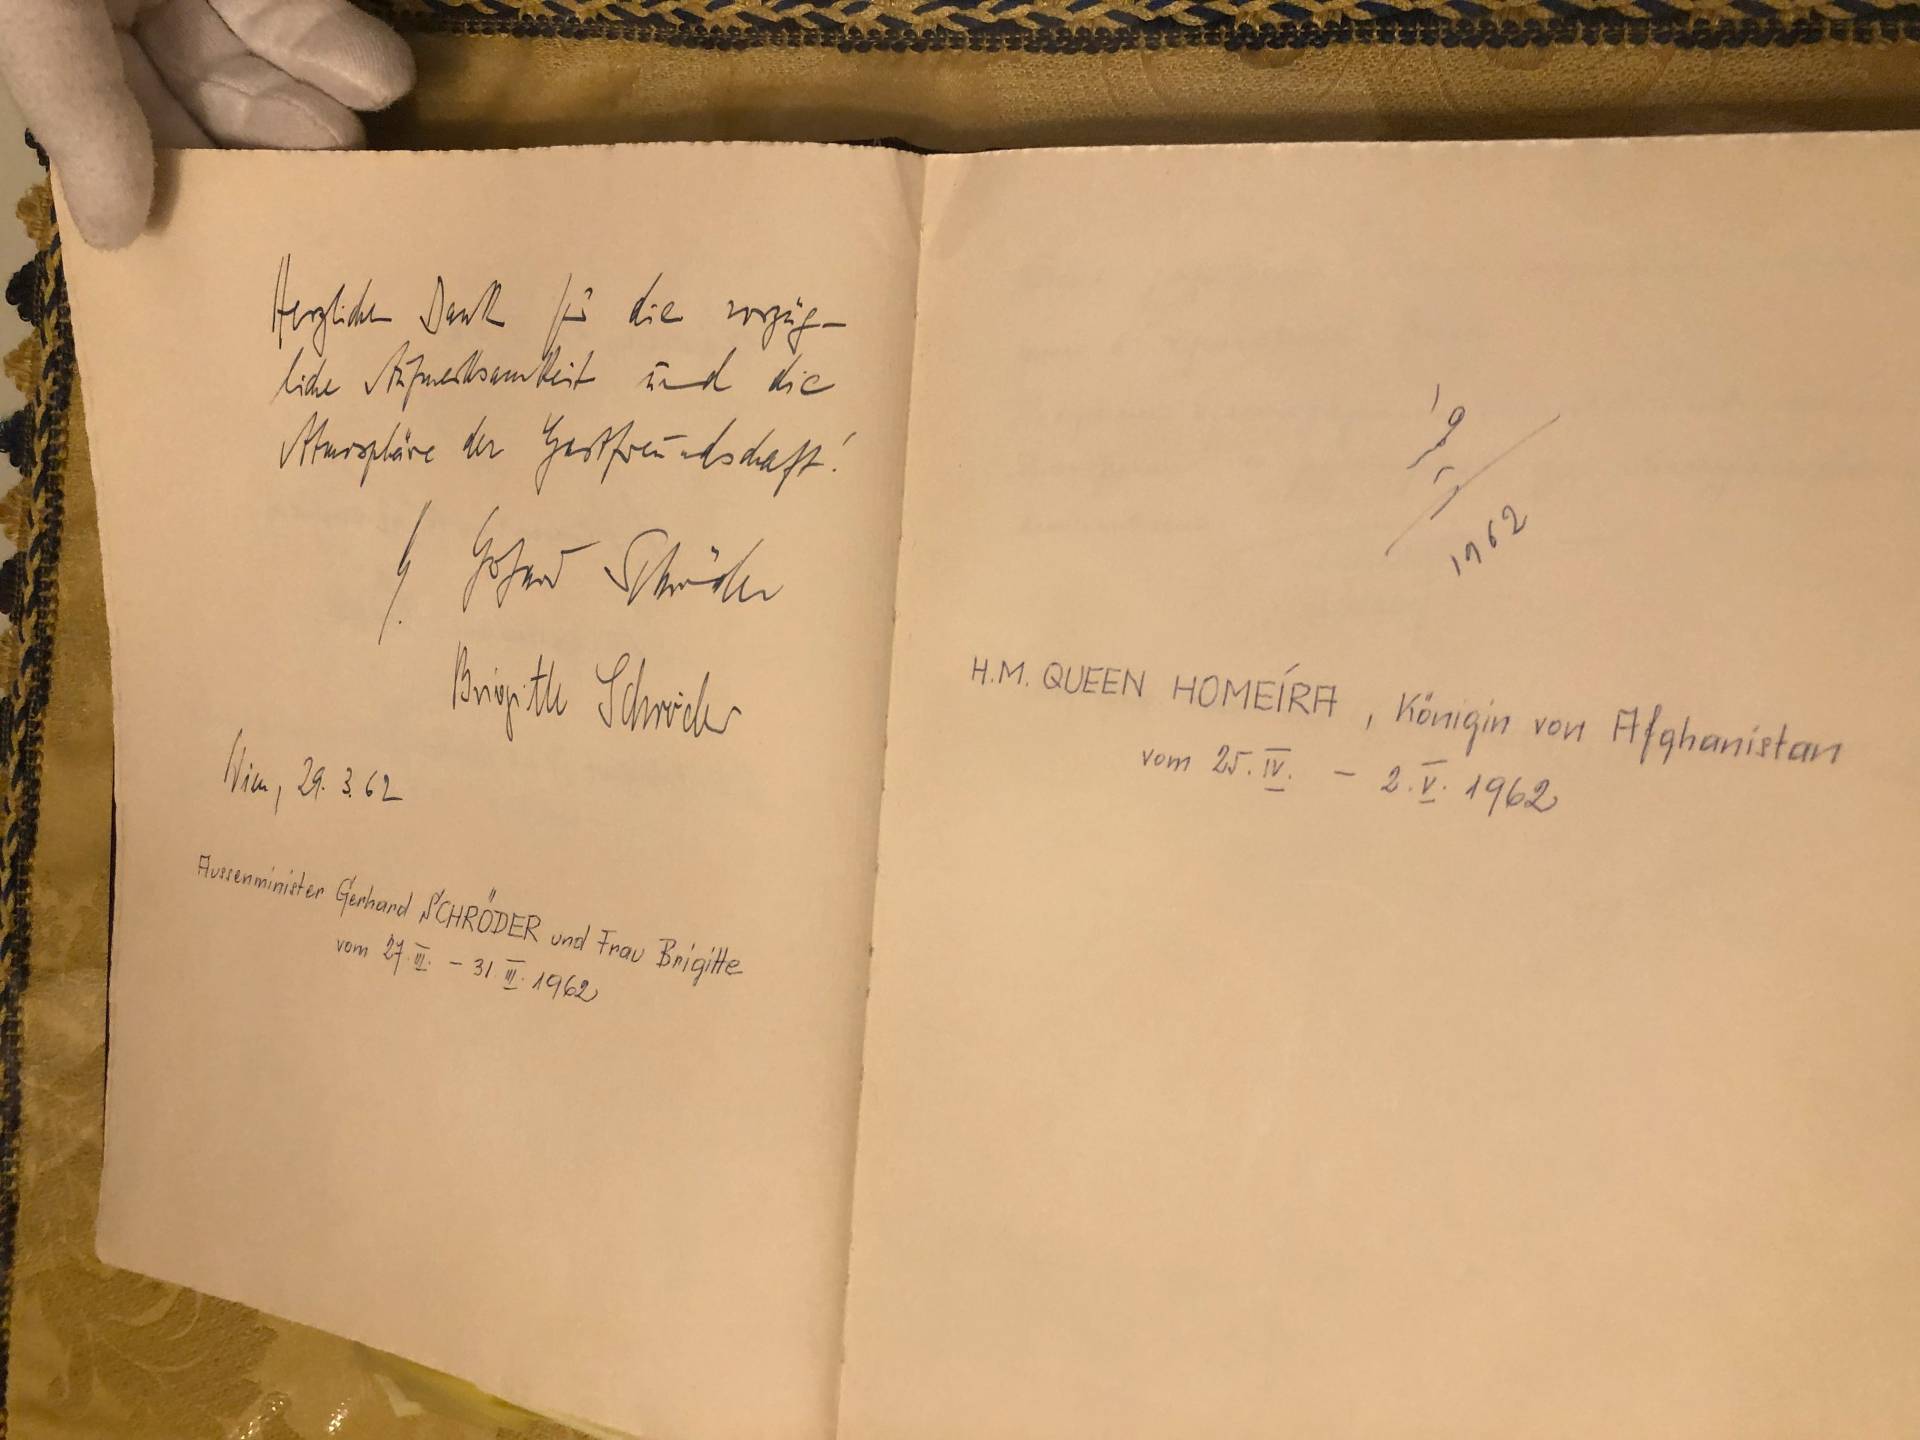 Herzlichen Dank für die vorzüg-
liche Aufmerksamkeit und die
Atmosphäre der Gastfreundschaft!
Gerhard Schröder
Brigitte Schröder
Wien, 29. 3. 62
Aussenminister Gerhard SCHRÖDER und Frau Brigitte
vom 27. III. – 31. III. 1962
1962
H.M. QUEEN HOMEÍRA, Königin von Afghanistan
vom 25. IV. – 2. V. 1962